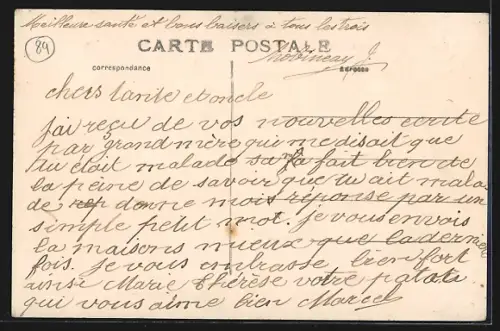 Meilleure santé et bons baisers à tous les trois
89
CARTE POSTALE
J.
correspondance
adresse
chers tante et oncle
j'ai reçu de vos nouvelles écrite
par grand mère qui me disait que
tu était malade sa fa fait bien de
la peine de savoir que tu ait mala
de rep donne mois réponse par un
simple petit mot. je vous envois
la maisons mieux que la dernier
fois. je vous embrasse bien fort
ainsi Marie Thérèse votre
qui vous aime bien Marcel